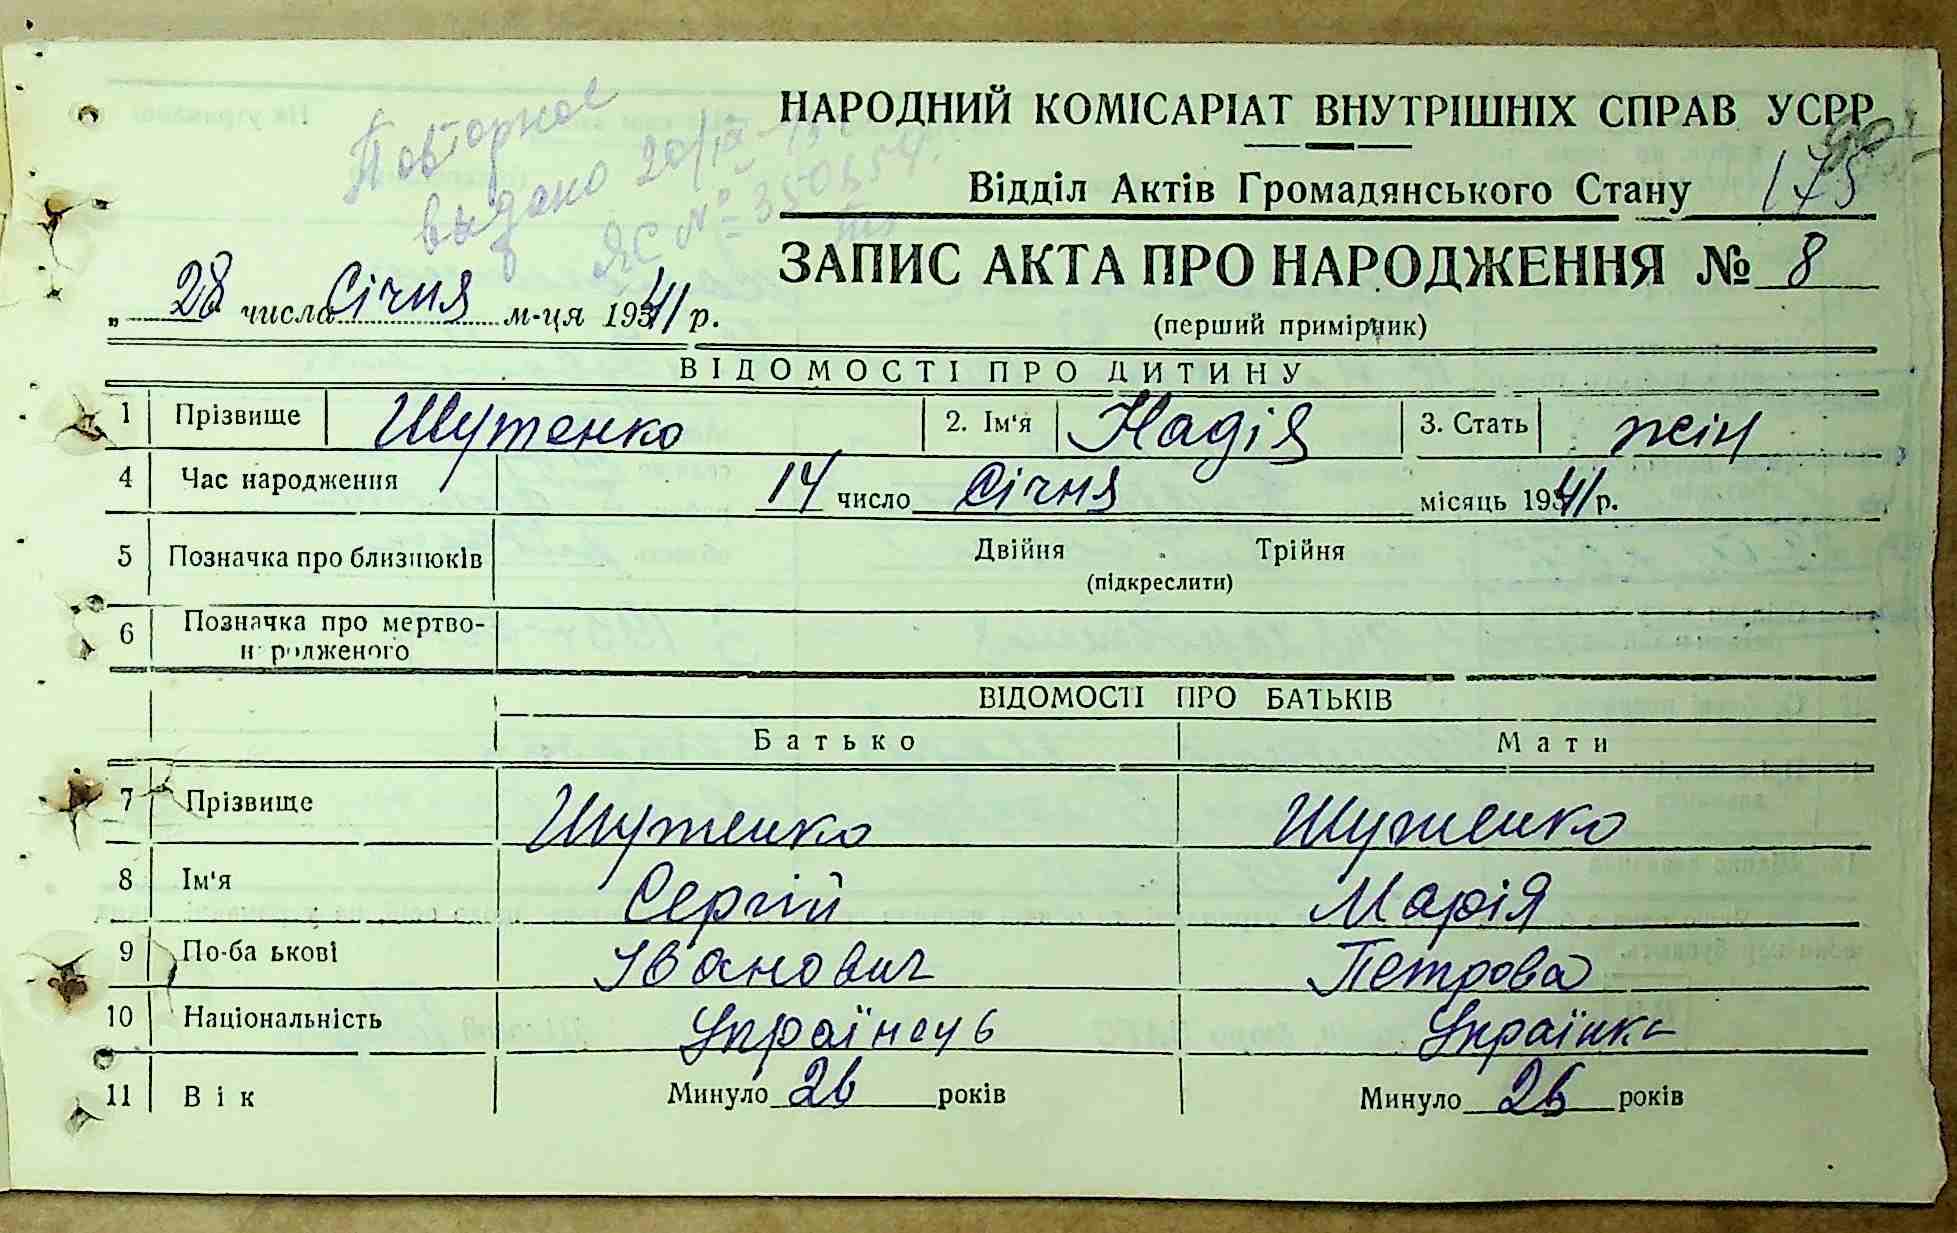 НАРОДНИЙ КОМІСАРІАТ ВНУТРІШНІХ СПРАВ УСРР
Відділ Актів Громадянського Стану 175
Повторное
выдано 20/IX
ЯС №
ЗАПИС АКТА ПРО НАРОДЖЕННЯ № 8
(перший примірник)
„ 28 числа Січня м-ця 1941 р.
ВІДОМОСТІ ПРО ДИТИНУ
1 Прізвище Шутенко 2. Ім'я Надія 3. Стать жін
4 Час народження 14 число Січня місяць 1941 р.
5 Позначка про близнюків Двійня Трійня
(підкреслити)
6 Позначка про мертво-
народженого
ВІДОМОСТІ ПРО БАТЬКІВ
Батько Мати
7 Прізвище Шутенко Шутенко
8 Ім'я Сергій Марія
9 По-ба ькові Іванович Петрова
10 Національність Українець Українка
11 Вік Минуло 26 років Минуло 26 років